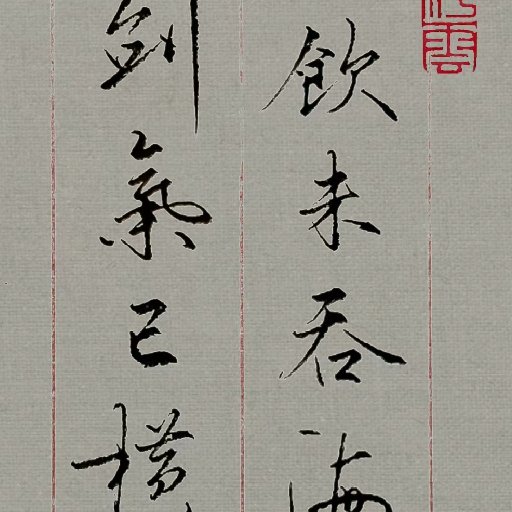 飲未吞海
劍氣已橫